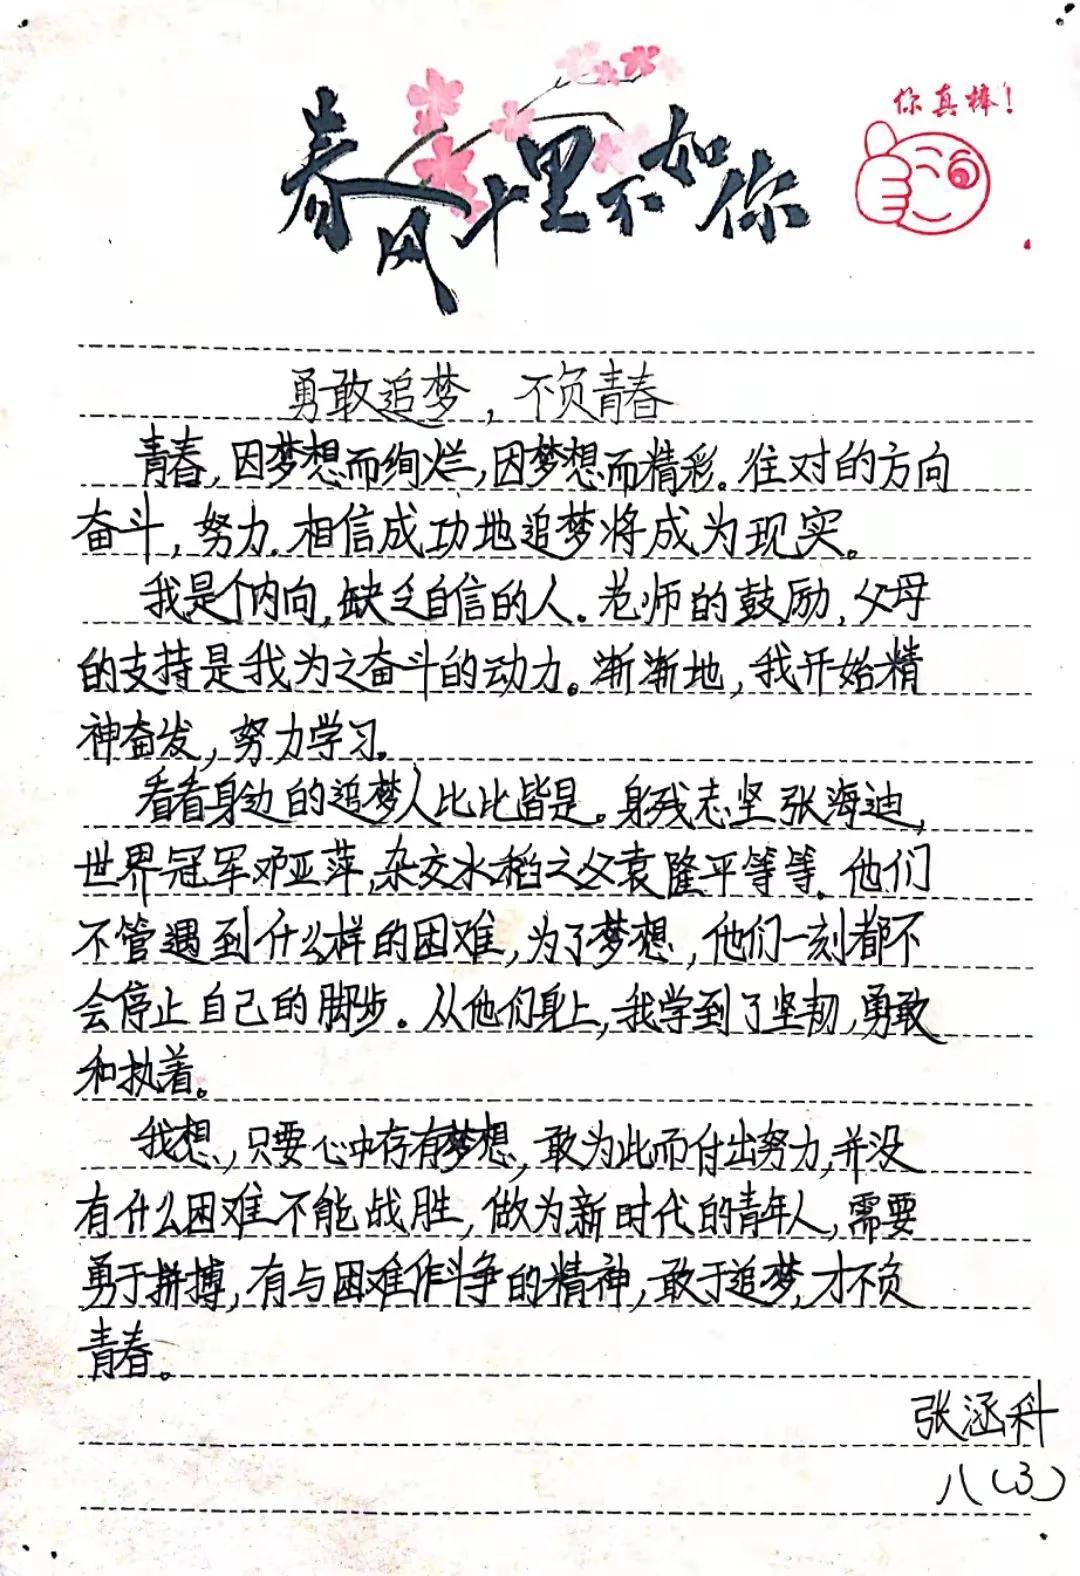 春风十里不如你
你真棒！
勇敢追梦，不负青春
青春，因梦想而绚烂，因梦想而精彩。往对的方向
奋斗，努力.相信成功地追梦将成为现实。
我是个内向，缺乏自信的人。老师的鼓励，父母
的支持是我为之奋斗的动力。渐渐地，我开始精
神奋发，努力学习.
看看身边的追梦人比比皆是。身残志坚张海迪，
世界冠军邓亚萍，杂交水稻之父袁隆平等等。他们
不管遇到什么样的困难，为了梦想，他们一刻都不
会停止自己的脚步。从他们身上，我学到了坚韧，勇敢
和执着。
我想，只要心中存有梦想，敢为此而付出努力，并没
有什么困难不能战胜，做为新时代的青年人，需要
勇于拼搏，有与困难作斗争的精神，敢于追梦，才不负
青春。
张涵科
八（3）